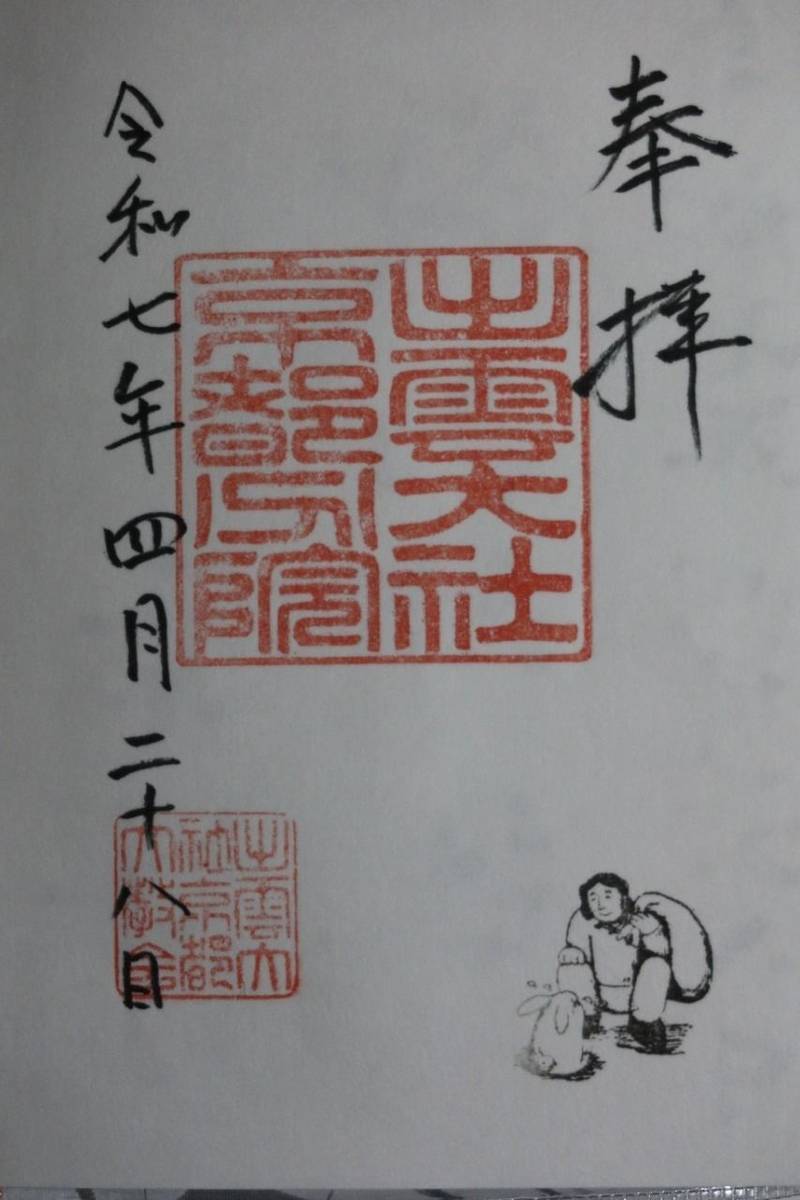 奉拝
出雲大社
京都分院
令和七年四月二十八日
出雲大
社京都
大教會